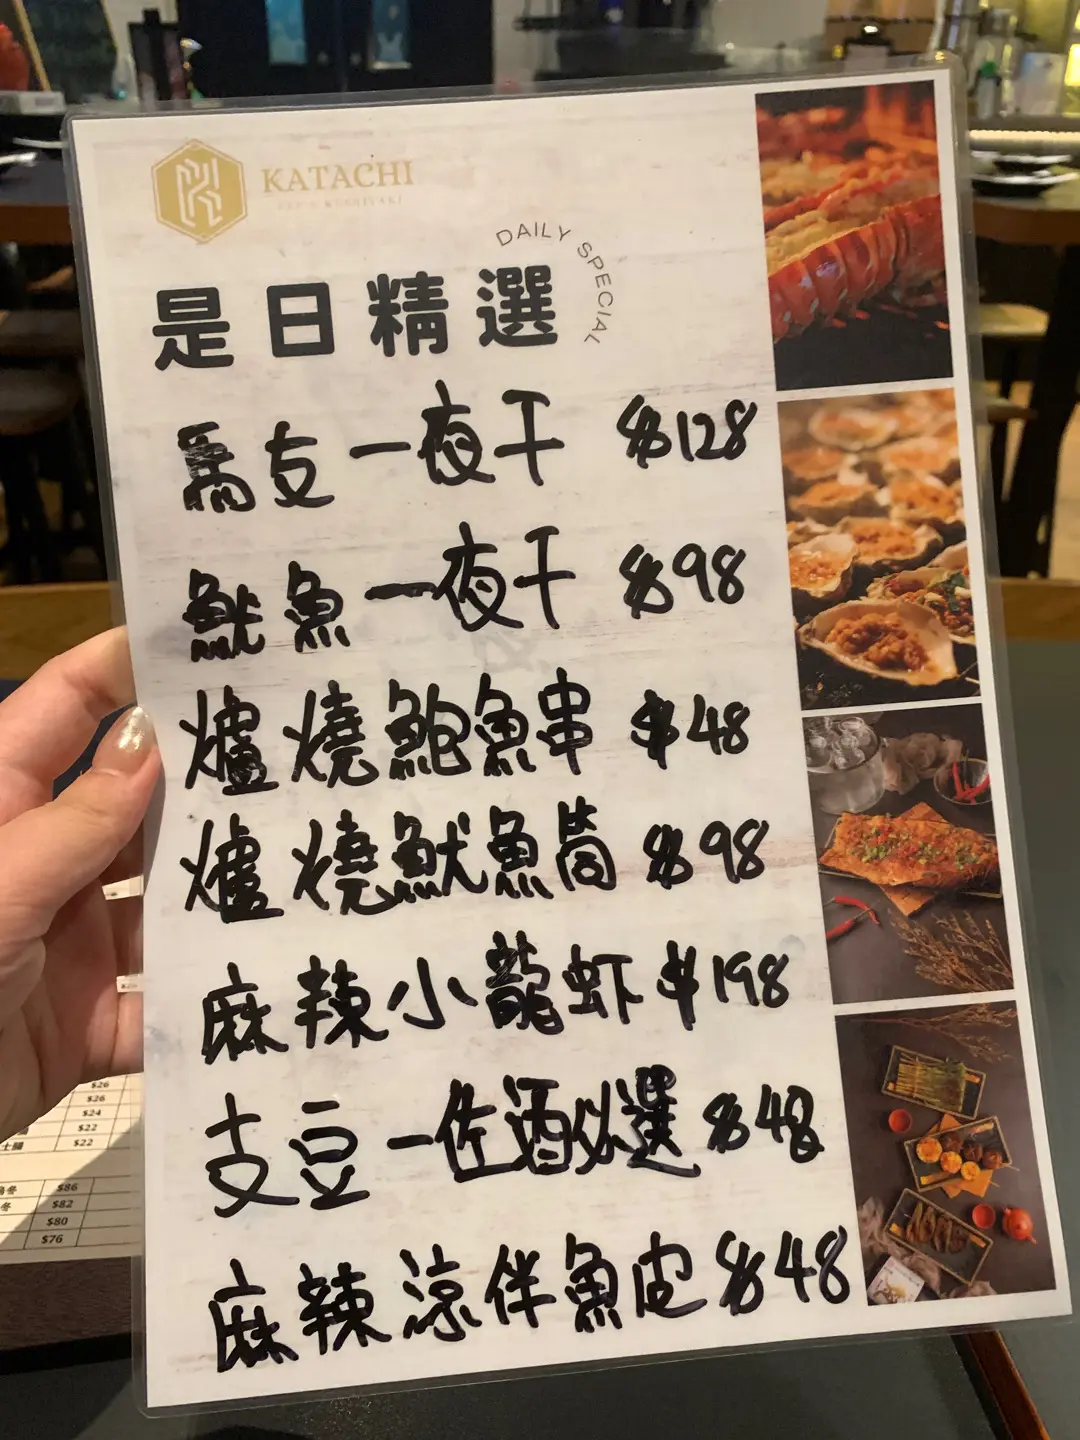 KATACHI
DAILY SPECIAL
是日精選
馬友一夜干 $128
魷魚一夜干 $98
爐燒鮑魚串 $48
爐燒魷魚筒 $98
麻辣小龍蝦 $198
支豆-佐酒必選 $48
麻辣涼伴魚皮 $48
$26
$26
$24
$22
$22
$86
$82
$80
$76